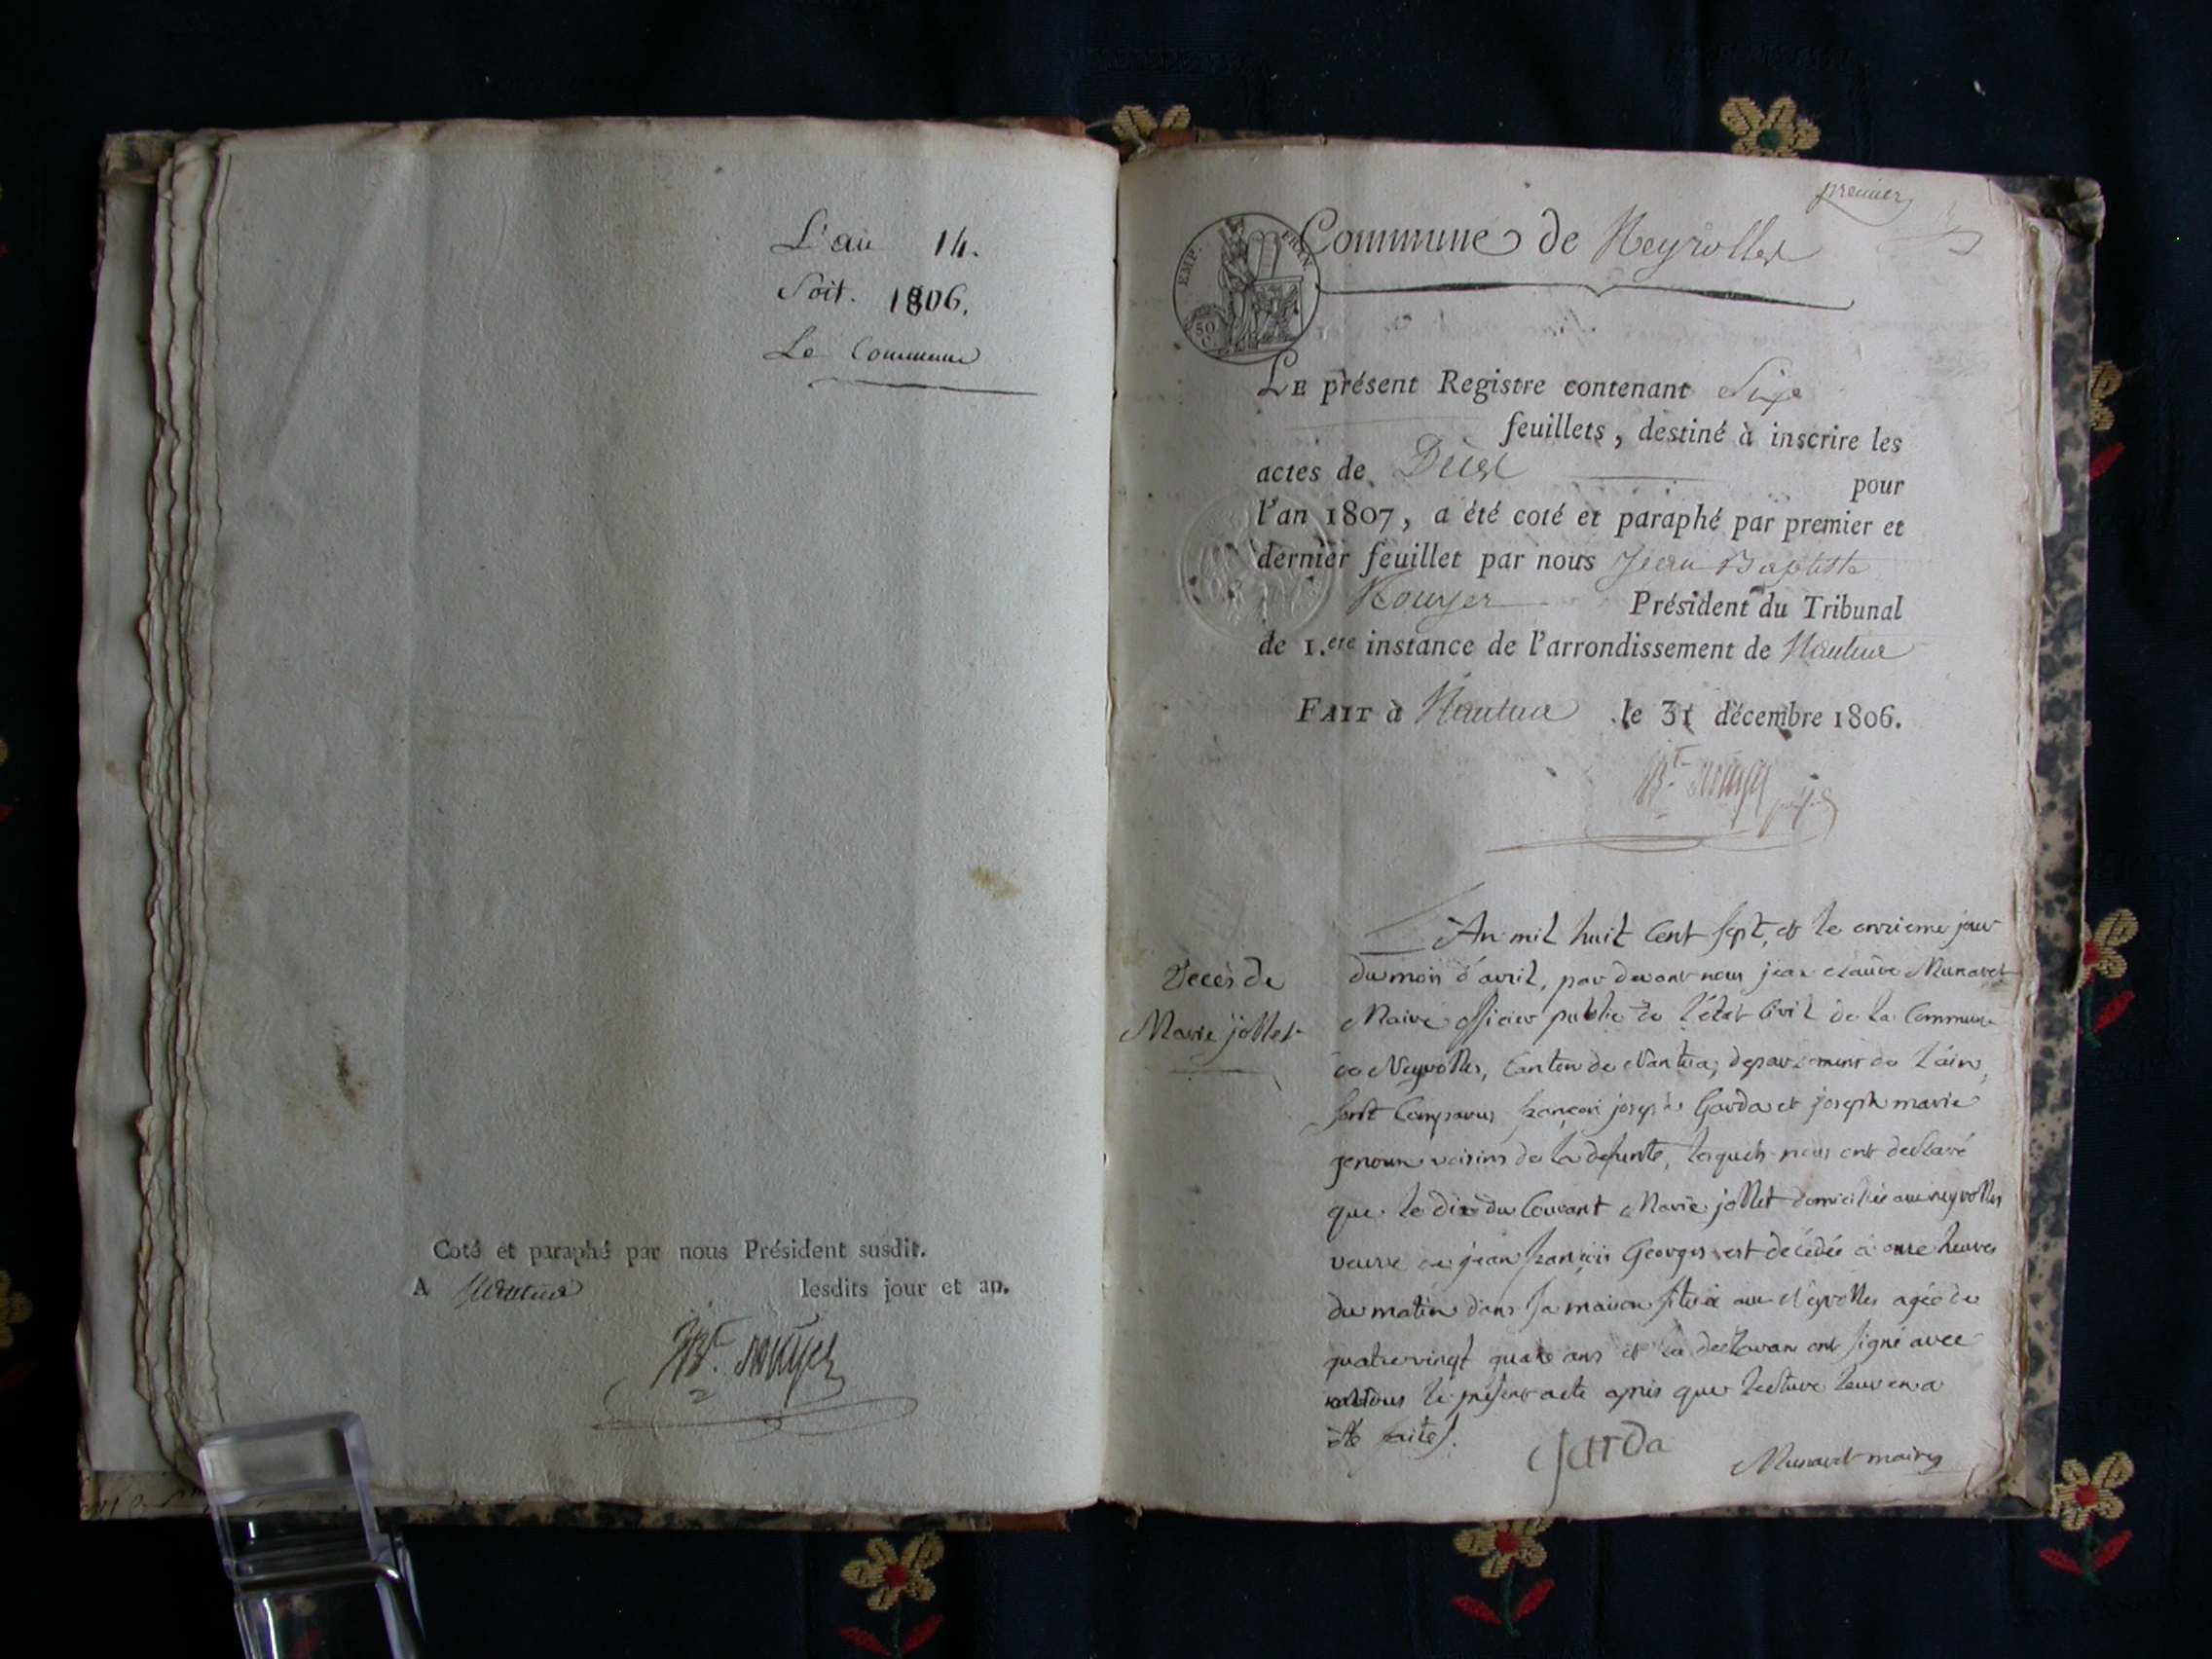 L'an 14.
Soit. 1806.
La Commune
Coté et paraphé par nous Président susdit.
A Nantua lesdits jour et an.
JBte. rouyer
premier
Commune de Neyrolles
EMP. FRAN.
50
C.
LE présent Registre contenant Six
feuillets, destiné à inscrire les
actes de Décès pour
l'an 1807, a été coté et paraphé par premier et
dernier feuillet par nous Jean Baptiste
Rouyer Président du Tribunal
de 1.ere instance de l'arrondissement de Nantua
FAIT à Nantua le 31 décembre 1806.
JBte. rouyer
Decès de
Marie jollet
L'An mil huit Cent sept, et le onzieme jour
du mois d'avril, par devant nous jean claude Munavet
Maire officier public de l'état Civil de la Commune
de Neyrolles, Canton de Nantua, departement de l'ain,
sont Comparus françois joseph Garda et joseph marie
voisins de la defunte, lesquels nous ont declaré
que le dix du Courant Marie jollet domiciliée aux neyrolles
veuve de jean françois Georges est décédée à onze heures
du matin dans sa maison située aux Neyrolles agée de
quatrevingt quatre ans et les declarans ont signé avec
nous le présent acte après que lecture leur en a
été faite.
Garda
Munavet maire